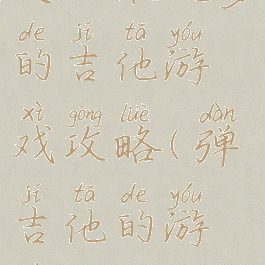 de jí tā yóu
的吉他游
xì gōng lüè dàn
戏攻略(弹
jí tā de yóu
吉他的游